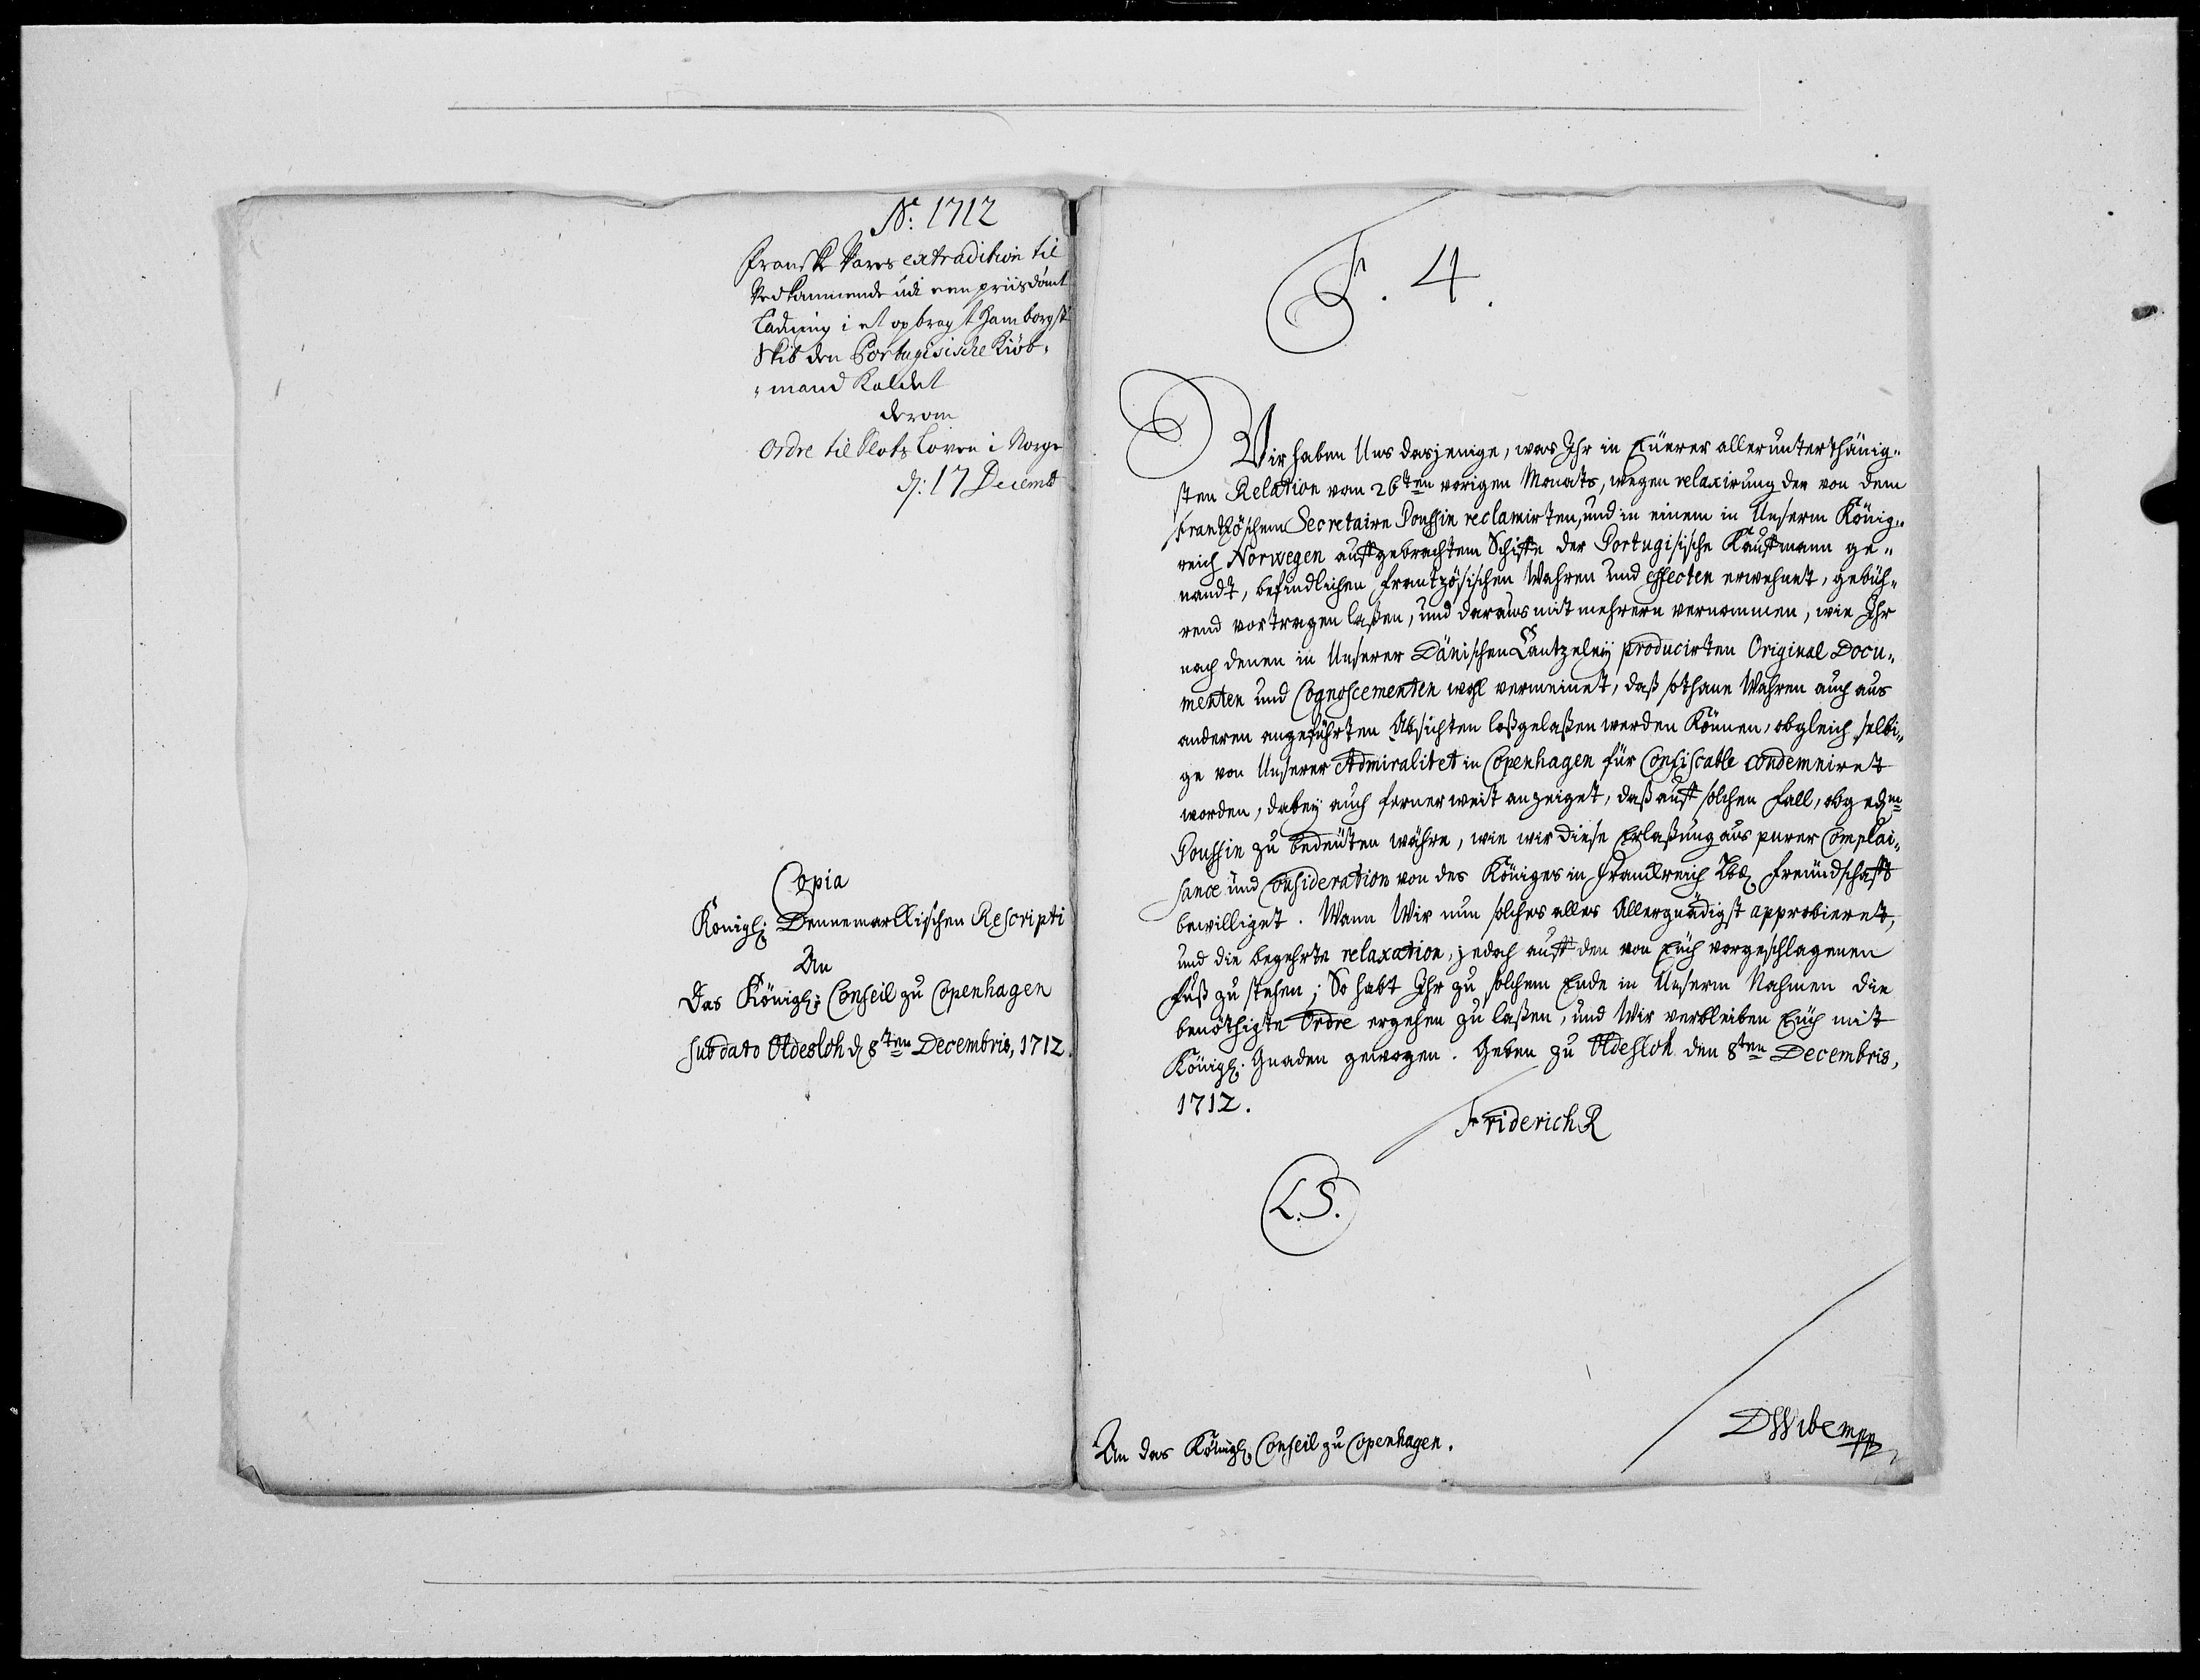 No: 1712
Franske Vares extradition til
Vedkommende udi een priisdömt
Ladning i et opbragt Hamborgsk
Skib den Portugisische Kiöb-
-mand Kaldet
derom
Ordre til Slots Loven i Norge
d: 17 Decemb
Copia
Königl: Dennemarkischen Rescripti
An
Das Königl: Conseil zu Copenhagen
sub dato Oldesloh d 8ten Decembris, 1712.
F. 4.
Wir haben Uns dasjenige, was Ihr in Eüerer allerunterthänig-
sten Relation vom 26ten vorigen Monats, wegen relaxirung der von dem
Frantzöschem Secretaire Poussin reclamirten, und in einem in Unserm König-
reich Norwegen auffgebrachtem Schiffe der Portugisische Kauffmann ge-
nandt, befindlichen frantzösischen Wahren und effecten erwehnet, gebüh-
rend vortragen laßen, und daraus mit mehrern vernommen, wie Ihr
nach denen in Unserer Dänischen Cantzeleÿ producirten Original Docu-
menten und Cognoscementen wohl vermeinet, daß sothane Wahren auch aus
anderen angeführten Absichten loßgelaßen werden Können, obgleich selbi-
ge von Unserer Admiralitet in Copenhagen für Confiscable condemniret
worden, dabeÿ auch fernerweit anzeiget, daß auff solchen fall, obgedm
Poussin zu bedeüten währe, wie wir diese Erlaßung aus purer Complai-
sance und Consideration von des Königes in Franckreich Lbd. freündschafft
bewilliget. Wann Wir nun solches alles Allergnädigst approbieret,
und die begehrte relaxation, jedoch auff den von Eüch vorgeschlagenen
fuß zu stehen; So habt Ihr zu solchem Ende in Unserm Nahmen die
benöthigte Ordre ergehen zu laßen, und Wir verbleiben Eüch mit
Königl: Gnaden gewogen. Geben zu Oldesloh den 8ten Decembris,
1712.
Friderich R
L.S.
DWibe mpp
An das Königl: Conseil zu Copenhagen.